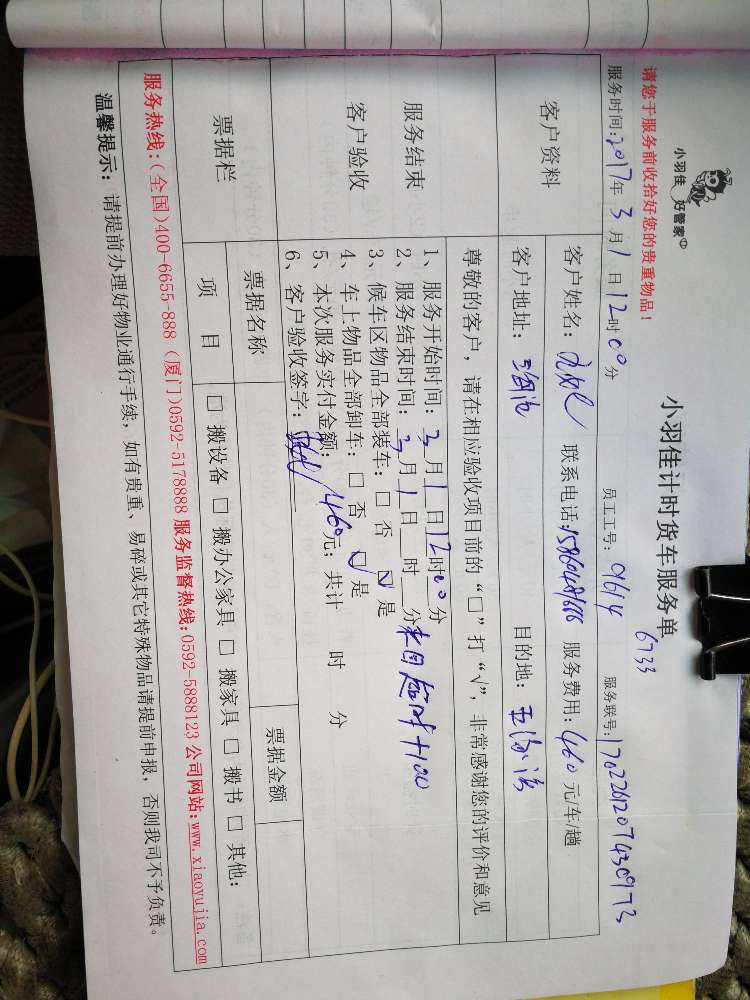 小羽佳 好管家
小羽佳计时货车服务单
6733
请您于服务前收拾好您的贵重物品!
服务时间:2017年3月1日12时00分 员工工号:9614 服务联号:1702261207430973
客户资料
客户姓名: 联系电话: 服务费用:460元/车/趟
客户地址: 目的地:
服务结束
客户验收
尊敬的客户,请在相应验收项目前的“□”打“√”,非常感谢您的评价和意见
1、服务开始时间:3月1日12时00分
2、服务结束时间:3月1日 时 分
3、候车区物品全部装车:□ 否 √是
4、车上物品全部卸车:□ 否 √是
5、本次服务实付金额:460元;共计 时 分
6、客户验收签字:
票据栏
票据名称 票据金额
项 目 □ 搬设备 □ 搬办公家具 □ 搬家具 □ 搬书 □ 其他:
服务热线:(全国)400-6655-888 (厦门)0592-5178888 服务监督热线:0592-5888123 公司网站:www.xiaoyujia.com
温馨提示:请提前办理好物业通行手续,如有贵重、易碎或其它特殊物品请提前申报,否则我司不予负责。